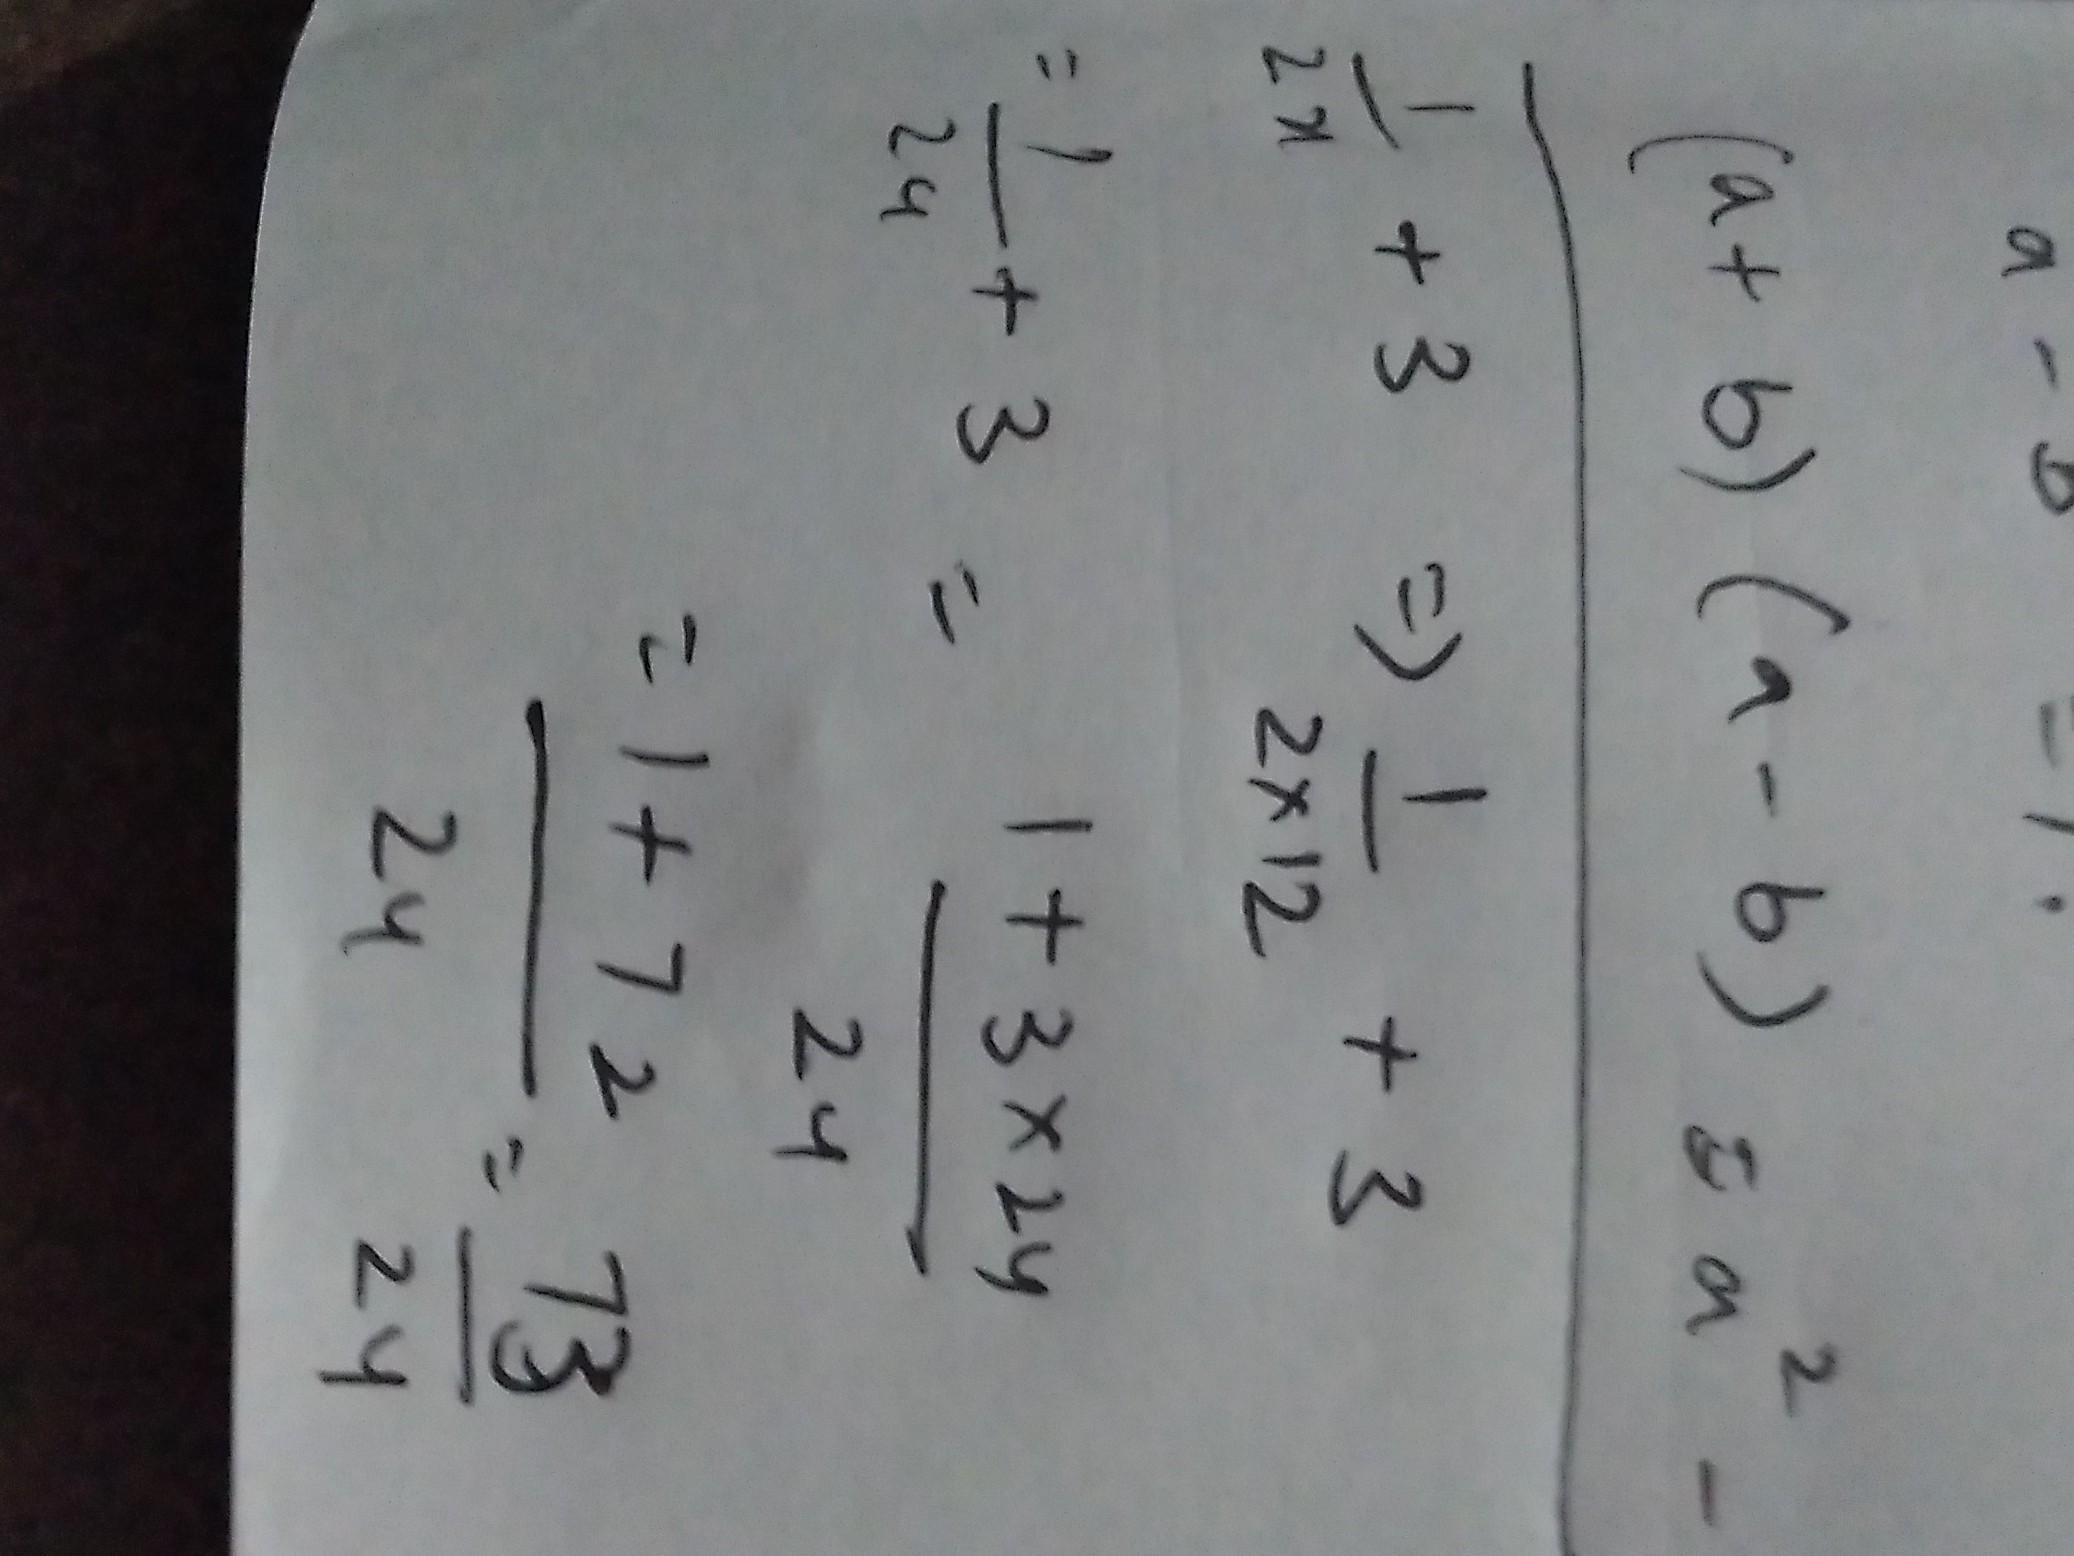 a - b = 1.
(a + b) (a - b) = a² -
1/2x + 3 => 1/2×12 + 3
= 1/24 + 3 = 1 + 3×24/24
= 1 + 72/24 = 73/24